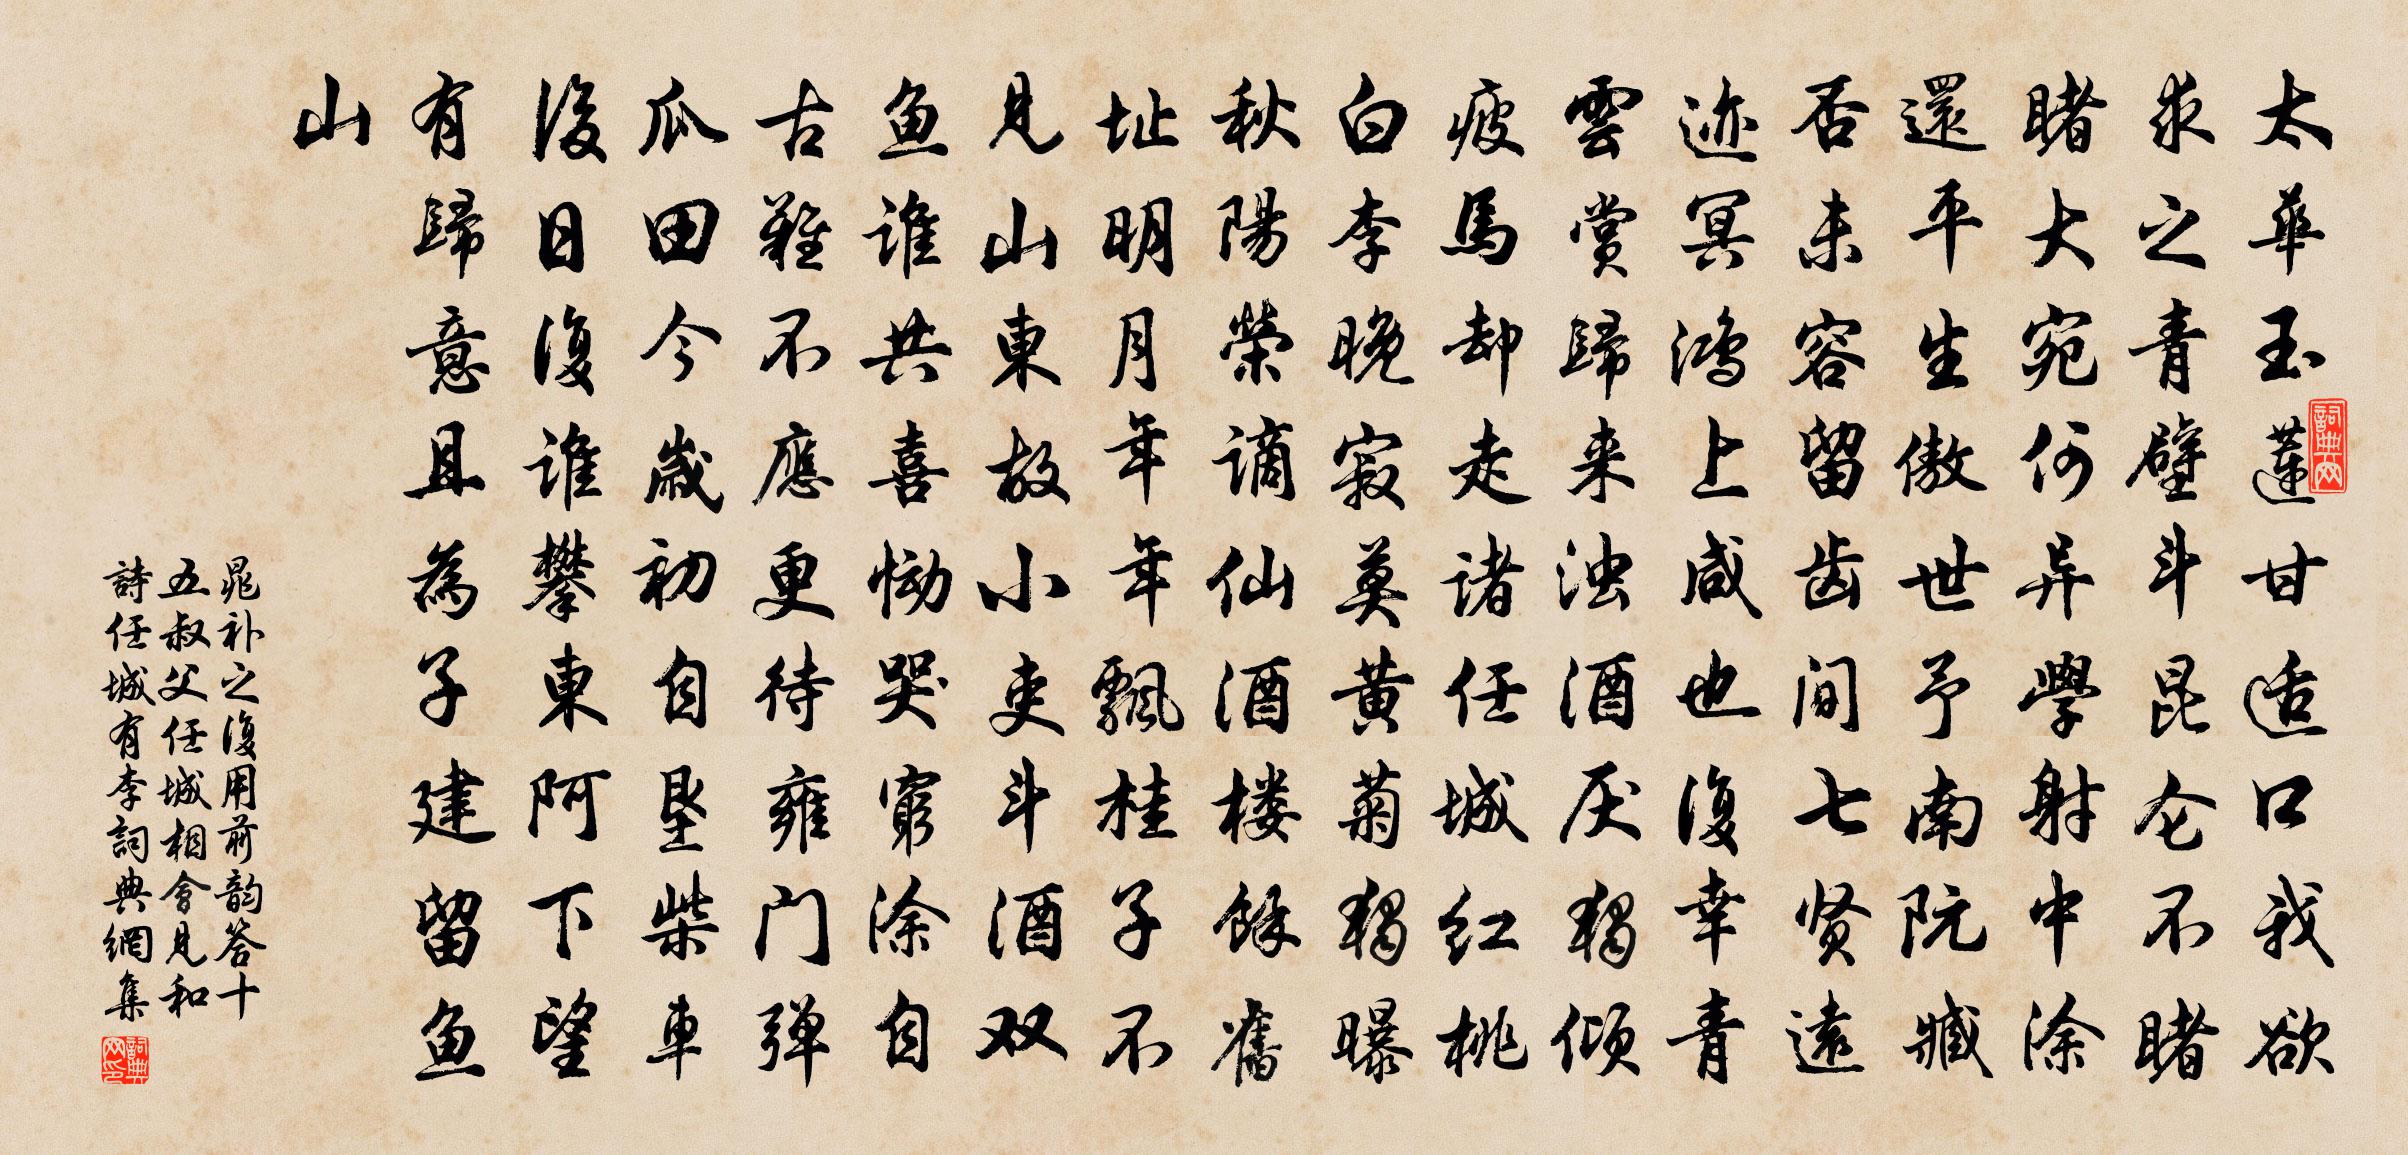 太華玉蓮甘适口我欲
求之青壁斗昆仑不睹
睹大宛何异學射中涂
還平生傲世予南阮臧
否未容留齿间七贤遠
迹冥鸿上咸也復幸青
雲賞歸来浊酒厌獨倾
疲馬却走诸任城红桃
白李晚寂莫黄菊獨曝
秋陽榮谪仙酒楼餘舊
址明月年年飘桂子不
見山東故小吏斗酒双
鱼谁共喜恸哭窮涂自
古難不應更待雍门弹
瓜田今歲初自垦柴車
後日復谁攀東阿下望
有歸意且為子建留鱼
山
晁补之復用前韵答十
五叔父任城相會見和
詩任城有李詞典網集
詞典网
詞典网印